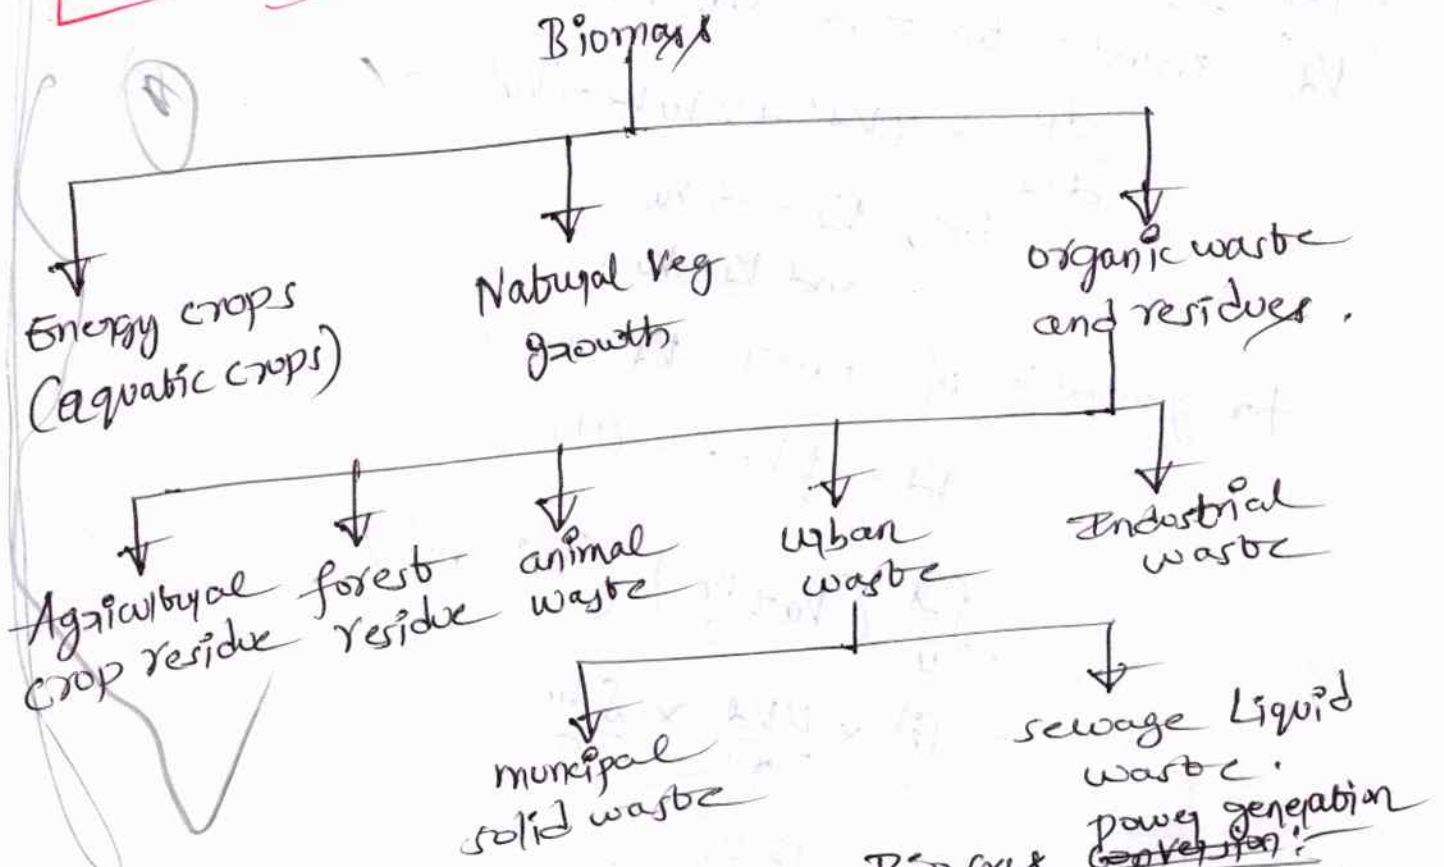 Biomass
Energy crops
(aquatic crops)
Natural Veg
growth
organic waste
and residues.
Agricultural
crop residue
forest
residue
animal
waste
urban
waste
Industrial
waste
muncipal
solid waste
sewage Liquid
waste.
power generation
Conversion: